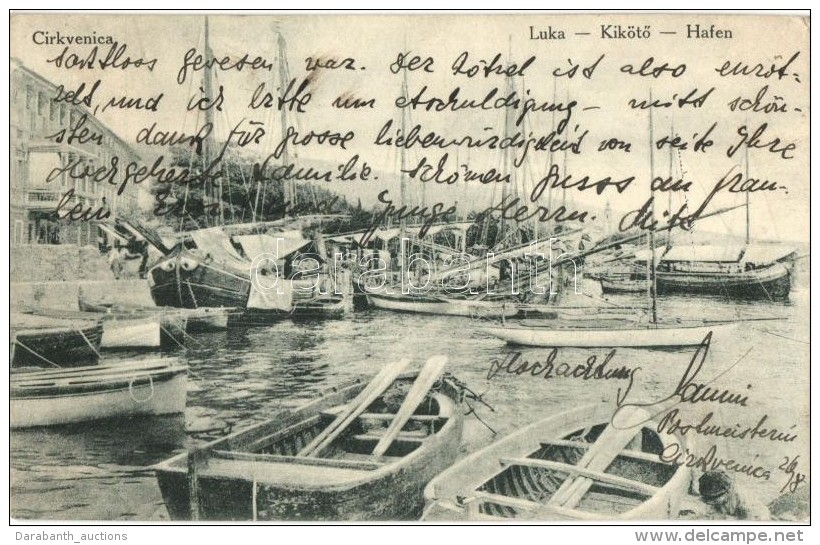 Cirkvenica
Luka — Kikötő — Hafen
gevesen var. Der Zötzel ist also enröt-
zelt, und ich bitte um etschuldigung — mitt schön-
sten dank für grosse liebenwürdigkeit von seite Ihre
Hochgeherde familie. Schönen guss an frau-
lein und Junge Herrn. Mitt
Hochachtung
Postmeisterin
Cirkvenica 26/8
darabanth
Darabanth_auctions
www.delcampe.net